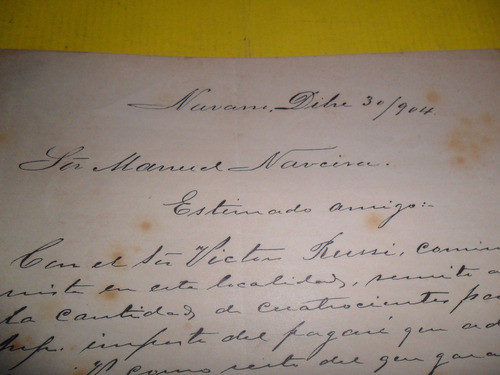 Navarro, Dibre 30/904.
Sór Manuel Narcisa.
Estimado amigo:-
Con el Sór Victor Russi, comisio
nista en esta localidad, remito a
la cantidad de cuatrocientos pe
m/n. importe del pagaré que ad
V como resto del que gara